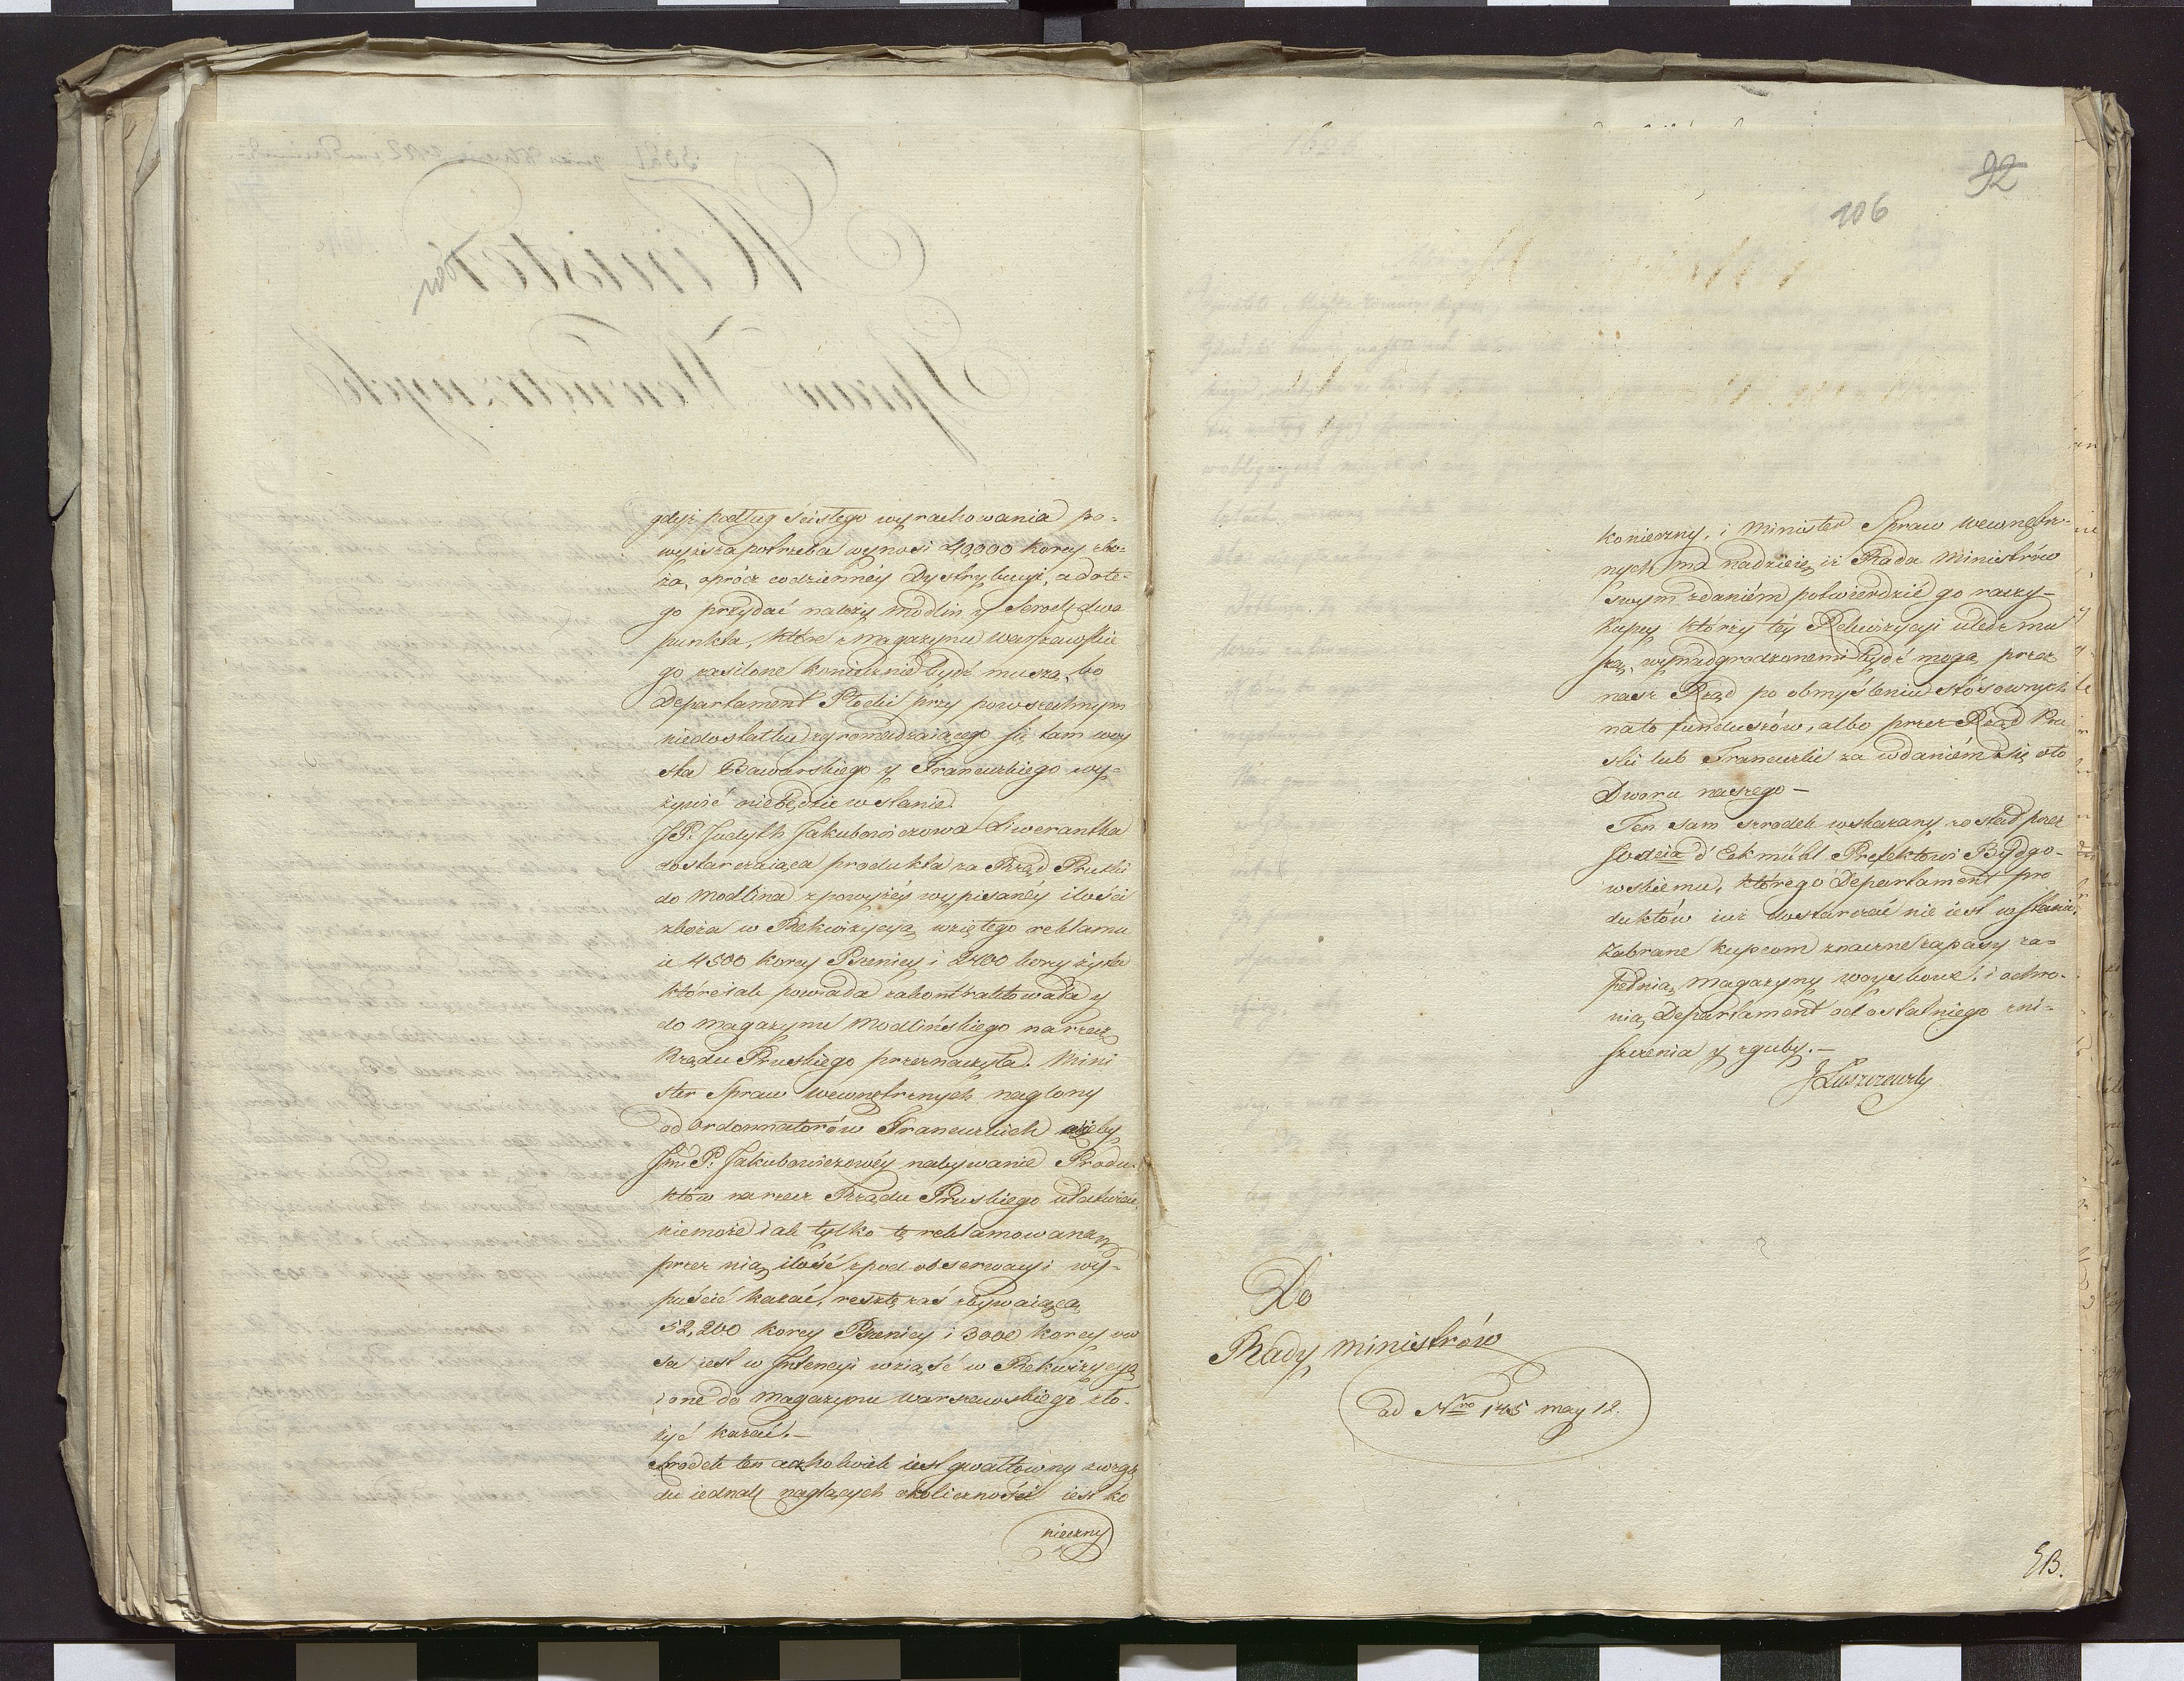 gdyż podług ścisłego wyrachowania po-
wyższa potrzeba wynosi 40000 korcy zbo-
ża, oprócz codziennéy Dystrybucyi, a do te-
go przydać należy Modlin y Serock, dwa
punkta, które z magazynu warszawskie
go zasilone koniecznie bydź muszą, bo
Departament Płocki przy powszechnym
niedostatku zgromadzaiącego się tam woy
ska Bawarskiego y Francuzkiego wy-
żywić niebędzie w stanie.
JP. Judyth Jakubowiczowa Liwerantka
dostarczaiąca produkta za Rząd Pruski
do Modlina z powyżéy wypisanéy ilości
zboża w Rekwizycyą wziętego reklamu
ie 4500 korcy Pszenicy i 2400 korcy żyta
które iak powiada zakontraktowała y
do magazynu Modlińskiego na rzecz
Rządu Pruskiego przeznaczyła. Mini
ster Spraw wewnętrznych naglony
od Ordonnatorów Francuzkich ażeby
Jmć P. Jakubowiczowéy nabywanie Produ-
któw na rzecz Rządu Pruskiego ułatwiać,
niemoże iak tylko tę reklamowaną
przez nią ilość z pod obserwacyi wy-
puścić kazać, resztę zaś zbywaiącą
52,200 korcy Pszenicy i 3000 korcy ow
sa iest w Intencyi wziąść w Rekwizycyą
i one do magazynu warszawskiego zło-
żyć kazać.—
Srodek ten aczkolwiek iest gwałtowny zwzglę
du iednak naglących okoliczności iest ko
nieczny
92
106
konieczny, i Minister Spraw wewnętrz-
nych ma nadzieię, iż Rada Ministrów
swym zdaniém potwierdzić go raczy—
Kupcy którzy téy Rekwizycyi uledz mu
szą, wynadgrodzonemi bydź mogą przez
nasz Rząd po obmyśleniu stósownych
na to funduszów, albo przez Rząd Pru
ski lub Francuzki za wdaniém się oto
Dworu naszego—
Ten sam srodek wskazany został przez
Xięcia d'Eckmühl Prefektowi Bydgo-
wskiemu, którego Departament pro
duktów iuż dostarczać nie iest w stanie.
Zabrane kupcom znaczne zapasy za-
pełnią magazyny woyskowe, i ochro-
nią Departament od ostatniego zni-
szczenia y zguby.—
J Łuszczewsky
Do
Rady Ministrów
ad Nro 145 may 12.
EB.